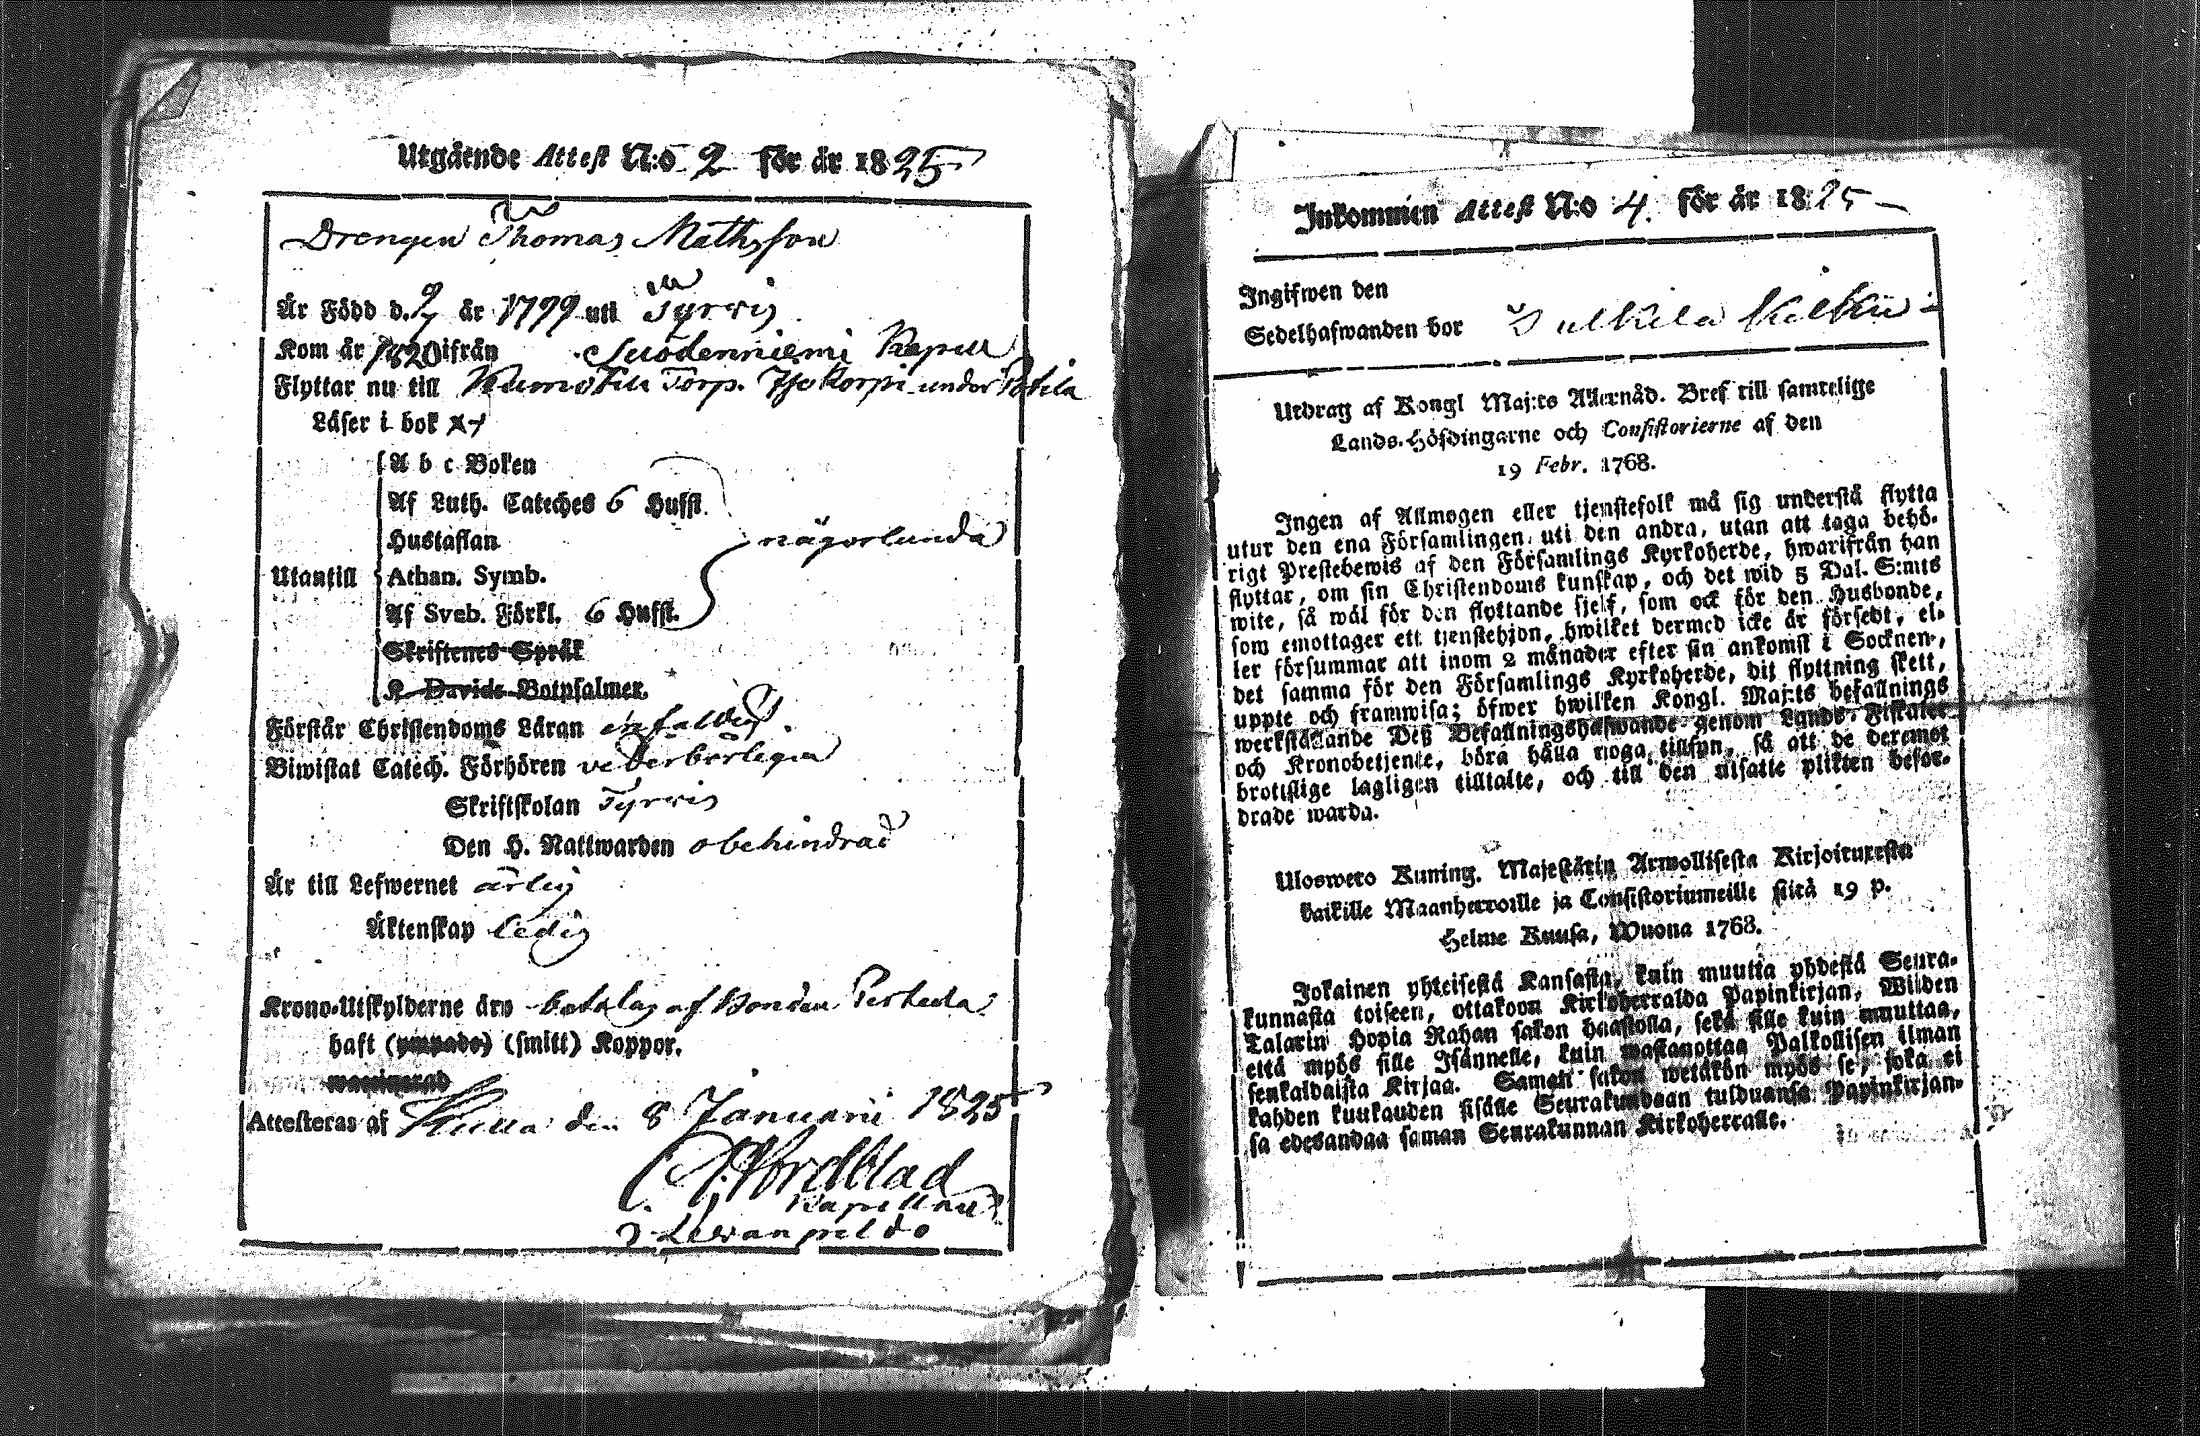 Utgående Attest N:o 2 för år 1825
Drengen Thomas Mathsson
Är Född d. år 1799 uti Tyrvis
Kom år 1820 ifrån Suodenniemi Kapell
Flyttar nu till Kumo Torp. under
Läser i bok
A b c Boken
Af Luth. Cateches 6 Hufst.
Hustaflan någorlunda
Utantill Athan. Symb.
Af Sveb. Förkl. 6 Hufst.
Skriftenes Språk
K. Davids Botpsalmer.
Förstår Christendoms Läran enfaldigt
Biwistat Catech. Förhören vederbörligen
Skriftskolan Tyrvis
Den H. Nattwarden obehindrad
Är till Lefwernet ärlig
Äktenskap ledig
Krono-Utskylderne äro af Bonden
haft (ympade) (smitt) Koppor.
waccinerad
Attesteras af den 8 Januarii 1825
Nordblad
Kapellan
Inkommen Attest N:o 4. för år 1825
Ingifwen den
Sedelhafwanden bor
Utdrag af Kongl Maj:ts Allernåd. Bref till samtelige
Lands-Höfdingarne och Consistorierne af den
19 Febr. 1768.
Ingen af Allmogen eller tjenstefolk må sig understå flytta
utur den ena Församlingen uti den andra, utan att taga behö-
rigt Prestebewis af den Församlings Kyrkoherde, hwarifrån han
flyttar, om sin Christendoms kunskap, och det wid 5 Dal. S:mts
wite, så wäl för den flyttande sjelf, som ock för den Husbonde,
som emottager ett tjenstehjon, hwilket dermed icke är försedt, el-
ler försummar att inom 2 månader efter sin ankomst i Socknen,
det samma för den Församlings Kyrkoherde, dit flyttning skett,
uppte och framwisa; öfwer hwilken Kongl. Maj:ts befallnings
werkställande Deß Befallningshafwande genom Lands-Fiskaler
och Kronobetjente, böra hålla noga tillsyn, så att de deremot
brottslige lagligen tilltalte, och till den utsatte plikten befor-
drade warda.
Ulosweto Kuning. Majestätin Armollisesta Kirjoituxesta
kaikille Maanherroille ja Consistoriumeille siitä 19 p.
Helme Kuusa, Wuona 1768.
Jokainen yhteisestä Kansasta, kuin muutta yhdestä Seura-
kunnasta toiseen, ottakoon Kirkoherralda Papinkirjan, Wiiden
Talarin Hopia Rahan sakon haastolla, sekä sille kuin muuttaa,
että myös sille Isännelle, kuin wastanottaa Palkollisen ilman
senkaldaista Kirjaa. Saman sakon wetäkön myös se, joka ei
kahden kuukauden sisälle Seurakundaan tulduansa Papinkirjan-
sa edesandaa saman Seurakunnan Kirkoherralle.